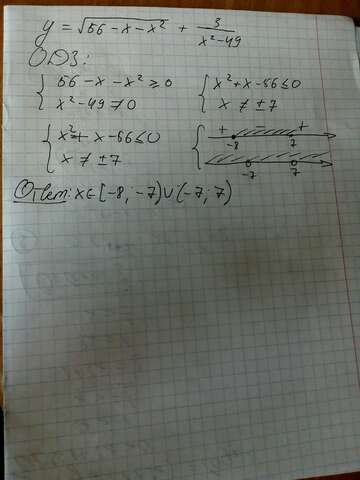 y = √56-x-x² + 3/(x²-49)
ОДЗ:
{ 56-x-x² ≥ 0 { x²+x-56 ≤ 0
{ x²-49 ≠ 0 { x ≠ ±7
{ x²+x-56 ≤ 0 { + - +
-8 7
{ x ≠ ±7 -7 7
Ответ: x∈[-8, -7)∪(-7; 7)